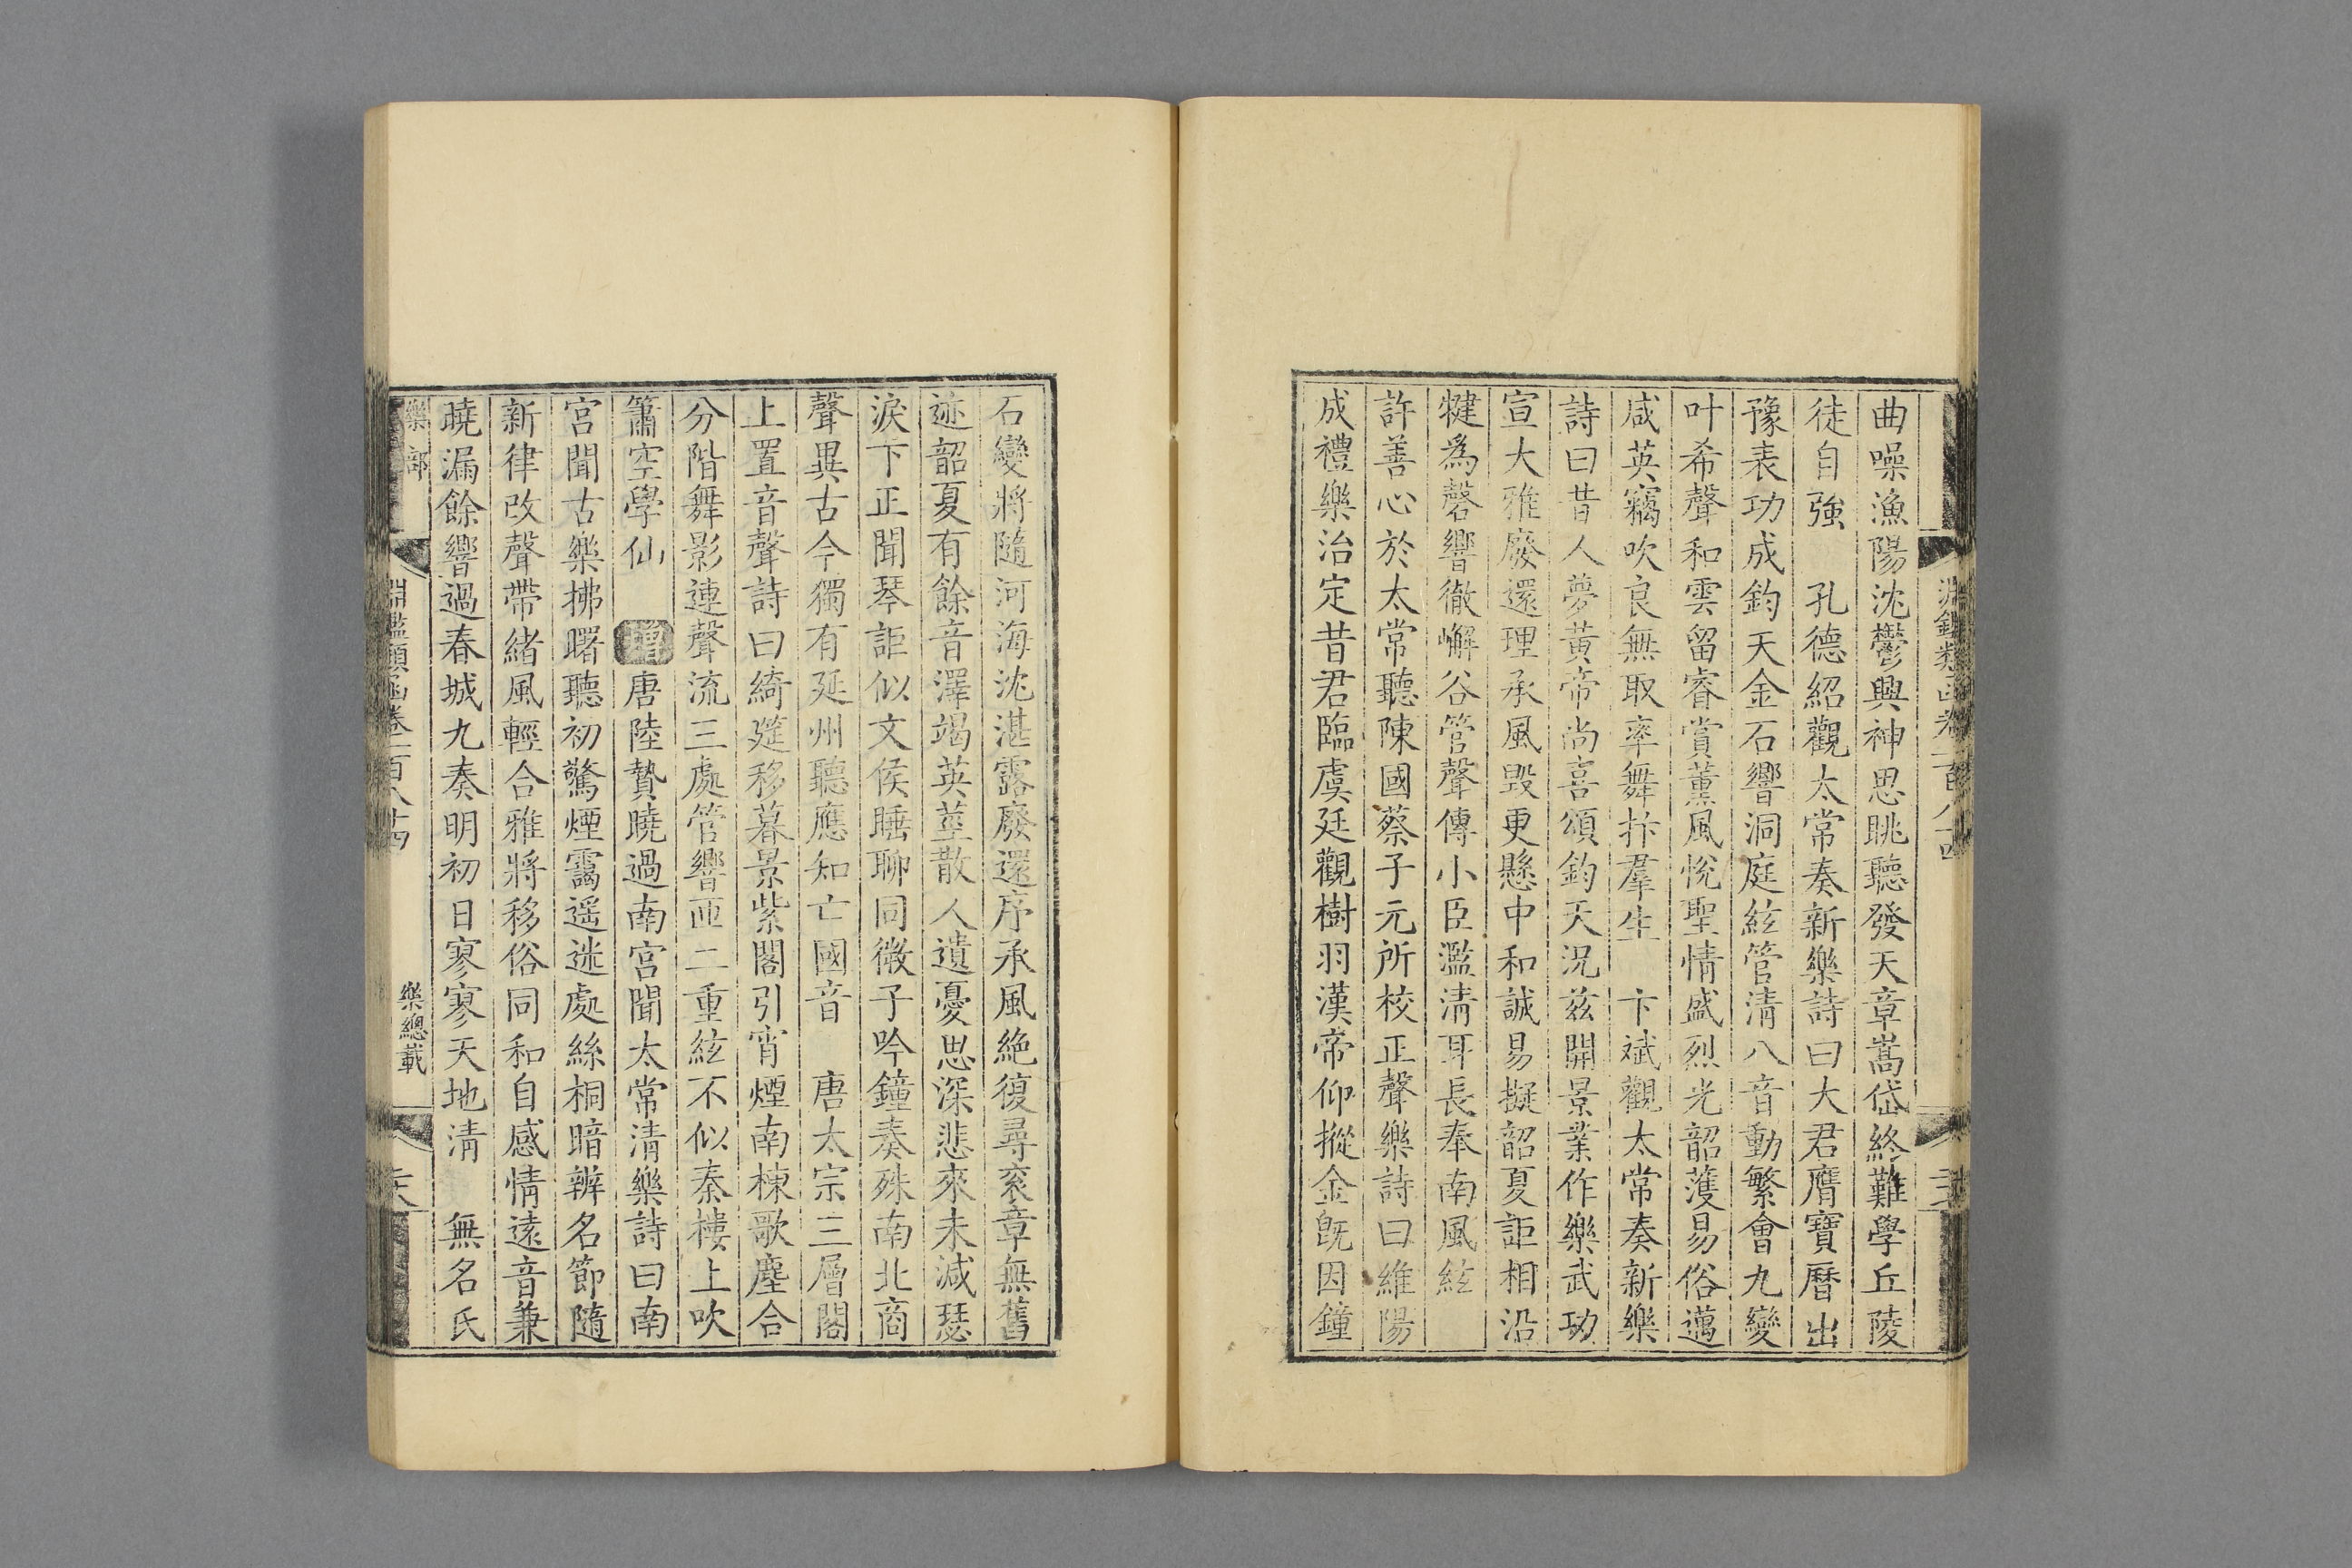 曲噪漁陽沈鬱興神思眺聽發天章嵩岱終難學丘陵
徒自強　孔德紹觀太常奏新樂詩曰大君膺寶曆出
豫表功成鈞天金石響洞庭絃管清八音動繁會九變
叶希聲和雲留睿賞薰風悅聖情盛烈光韶濩易俗邁
咸英竊吹良無取率舞抃羣生　卞斌觀太常奏新樂
詩曰昔人夢黃帝尚喜頌鈞天況茲開景業作樂武功
宣大雅廢還理承風毀更懸中和誠易擬韶夏詎相沿
犍為磬響徹嶰谷管聲傳小臣濫清耳長奉南風絃
許善心於太常聽陳國蔡子元所校正聲樂詩曰維陽
成禮樂治定昔君臨虞廷觀樹羽漢帝仰摐金既因鐘
石變將隨河海沈湛露廢還序承風絕復尋衮章無舊
迹韶夏有餘音澤竭英莖散人遺憂思深悲來未減瑟
淚下正聞琴詎似文侯睡聊同微子吟鐘奏殊南北商
聲異古今獨有延州聽應知亡國音　唐太宗三層閣
上置音聲詩曰綺筵移暮景紫閣引宵煙南棟歌塵合
分階舞影連聲流三處管響亞二重絃不似秦樓上吹
簫空學仙　增唐陸贄曉過南宮聞太常清樂詩曰南
宮聞古樂拂曙聽初驚煙靄遥迷處絲桐暗辨名節隨
新律改聲帶緒風輕合雅將移俗同和自感情遠音兼
曉漏餘響過春城九奏明初日寥寥天地清　無名氏
樂部
淵鑑類函卷一百八十四
樂總載